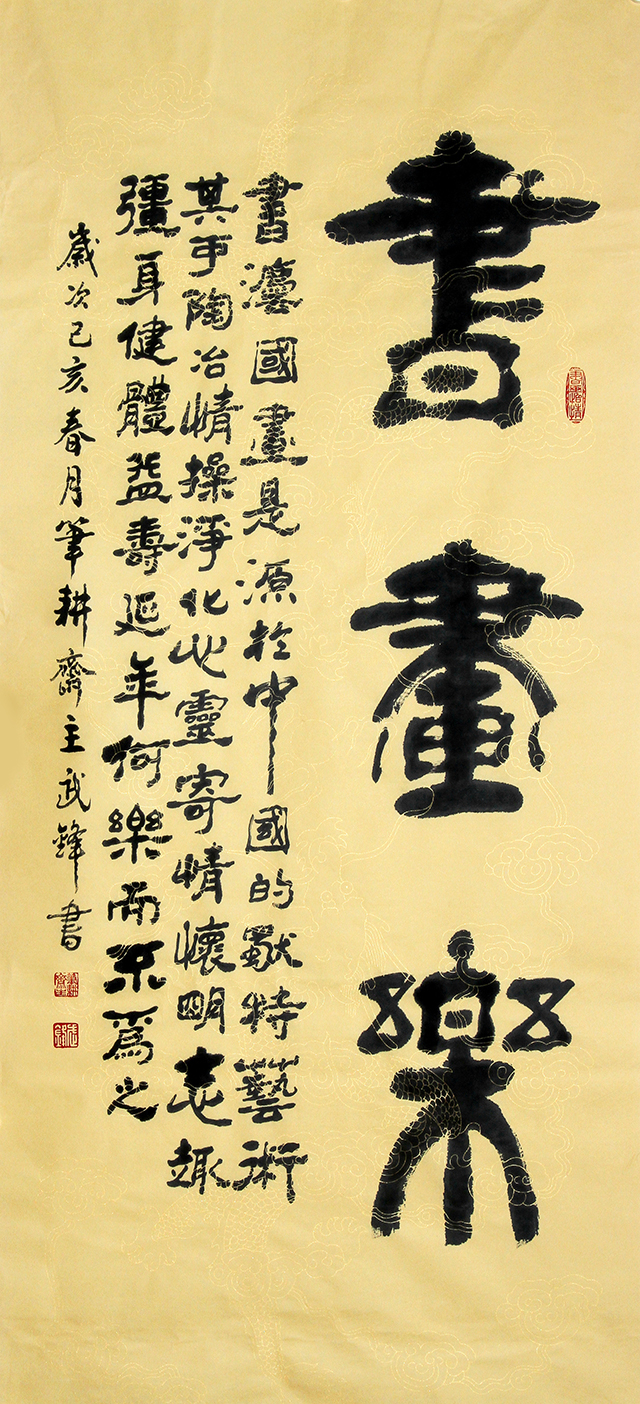 書畫樂
書灋國畫是源於中國的特藝術
其乎陶冶情操淨化心靈寄情懷明志趣
彊身健體益壽延年何樂而不爲之
歲次己亥春月筆耕齋主武鋒書